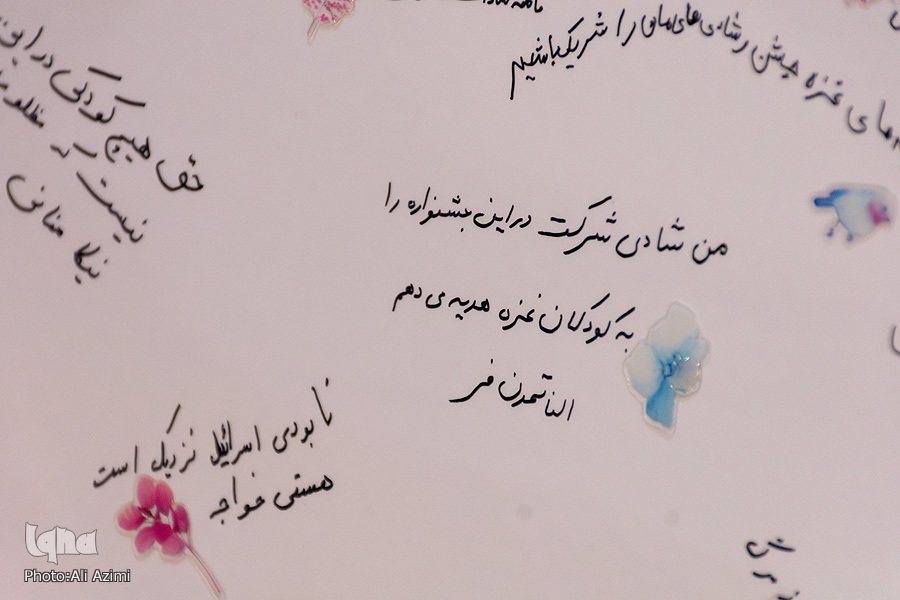 غزه جشن و شادی های مان را شریک باشیم
حق هیچ کودکی در این
نیست که مظلوم
نیکا حنانی
من شادی شرکت در این جشنواره را
به کودکان غزه هدیه می دهم
النا تمدن فر
نابودی اسرائیل نزدیک است
هستی خواجه
Iqna
Photo:Ali Azimi